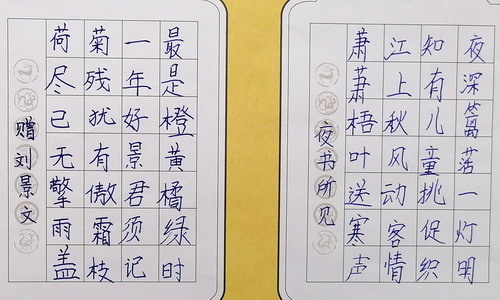 赠刘景文
荷尽已无擎雨盖
菊残犹有傲霜枝
一年好景君须记
最是橙黄橘绿时
夜书所见
萧萧梧叶送寒声
江上秋风动客情
知有儿童挑促织
夜深篱落一灯明